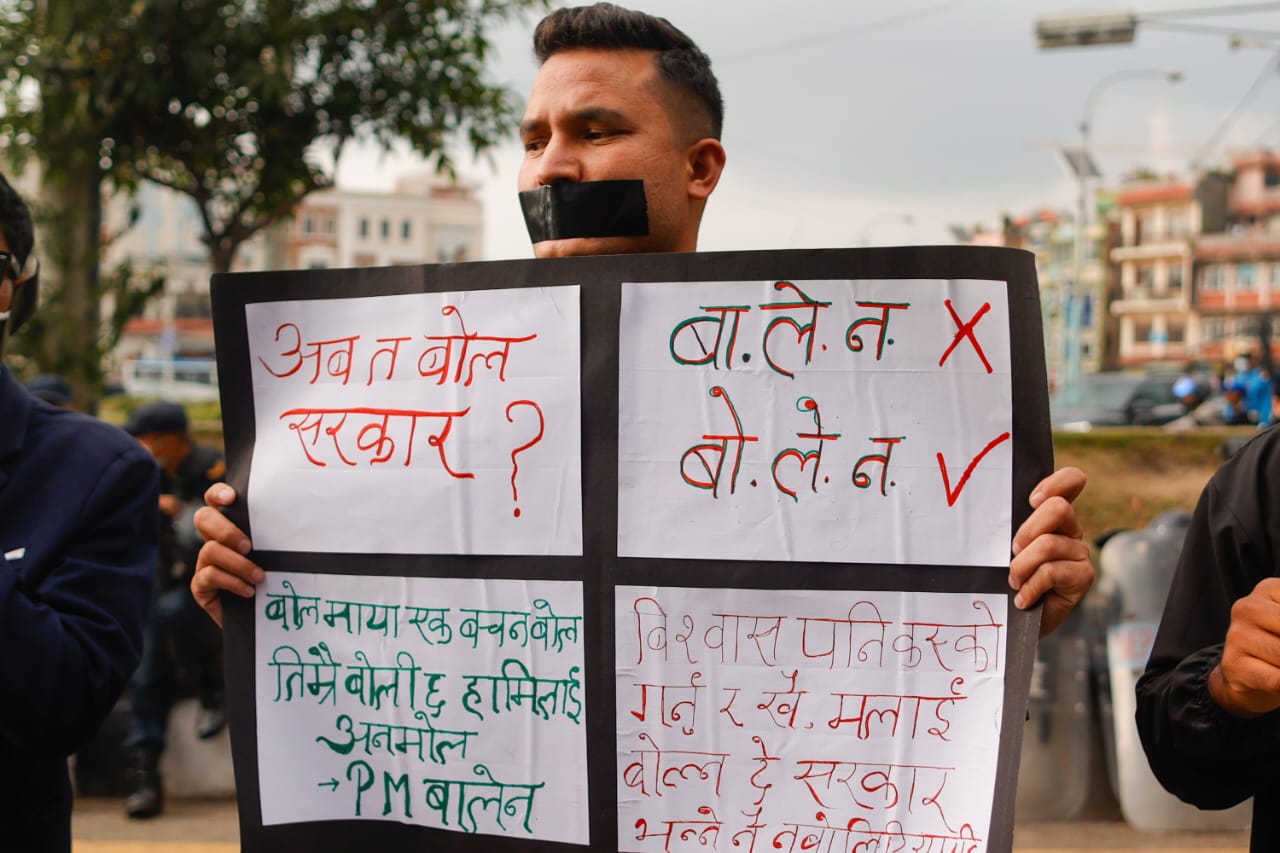 अब त बोल
सरकार ?
बा. ले. न. X
बो. ले. न. ✓
बोल माया एक बचन बोल
तिम्रै बोली छ हामिलाई
अनमोल
→ PM बालेन
बिश्वास पनि कस्को
गर्नु र खै, मलाई
बोल्न दे सरकार
भन्ने नै नबोलिदियापछि